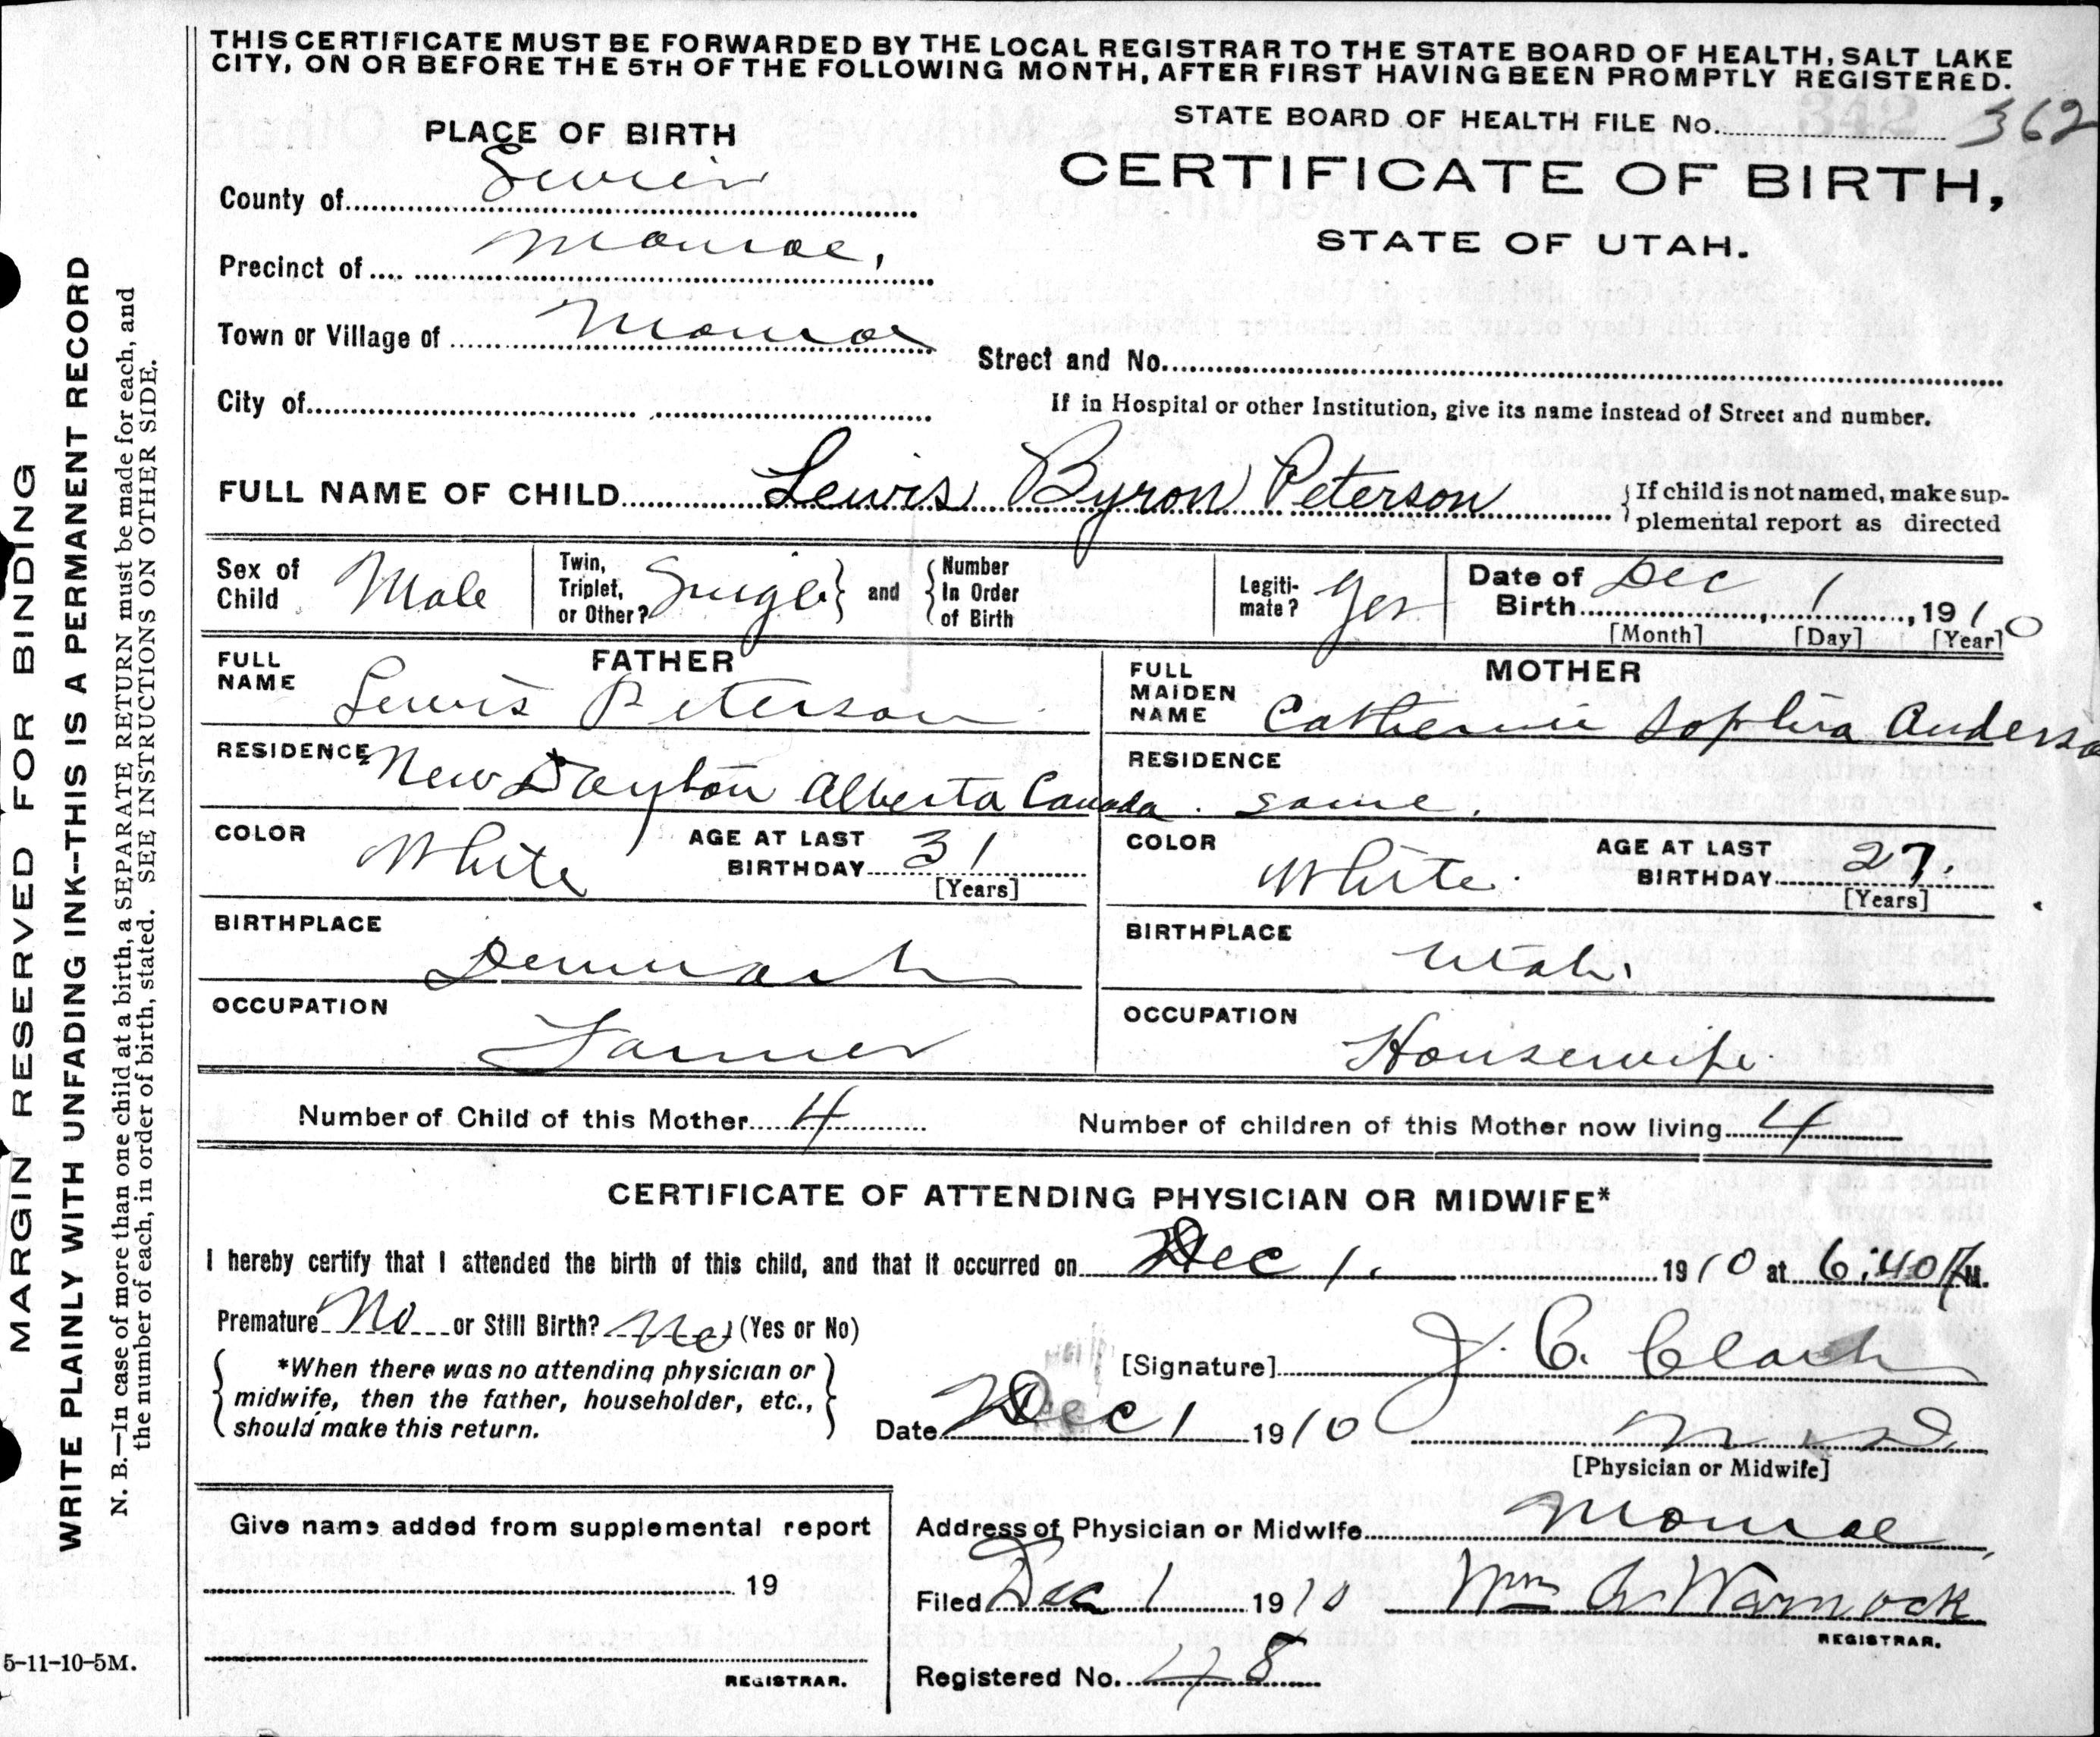 THIS CERTIFICATE MUST BE FORWARDED BY THE LOCAL REGISTRAR TO THE STATE BOARD OF HEALTH, SALT LAKE
CITY, ON OR BEFORE THE 5TH OF THE FOLLOWING MONTH, AFTER FIRST HAVING BEEN PROMPTLY REGISTERED.
STATE BOARD OF HEALTH FILE No. 342 362
PLACE OF BIRTH
CERTIFICATE OF BIRTH,
STATE OF UTAH.
County of Sevier
Precinct of Monroe,
Town or Village of Monroe
Street and No.
City of
If in Hospital or other Institution, give its name instead of Street and number.
FULL NAME OF CHILD Lewis Byron Peterson
If child is not named, make sup-
plemental report as directed
Sex of Child Male
Twin, Triplet, or Other? Single and Number In Order of Birth
Legiti-mate? Yes
Date of Birth Dec 1, 1910
[Month] [Day] [Year]
FATHER
FULL NAME Lewis Peterson
MOTHER
FULL MAIDEN NAME Catherine Sophia Anderso
RESIDENCE New Dayton Alberta Canada.
RESIDENCE same.
COLOR White AGE AT LAST BIRTHDAY 31
[Years]
COLOR White. AGE AT LAST BIRTHDAY 27.
[Years]
BIRTHPLACE Denmark
BIRTHPLACE Utah.
OCCUPATION Farmer
OCCUPATION Housewife.
Number of Child of this Mother 4 Number of children of this Mother now living 4
CERTIFICATE OF ATTENDING PHYSICIAN OR MIDWIFE*
I hereby certify that I attended the birth of this child, and that it occurred on Dec 1. 1910 at 6:40 M.
Premature No or Still Birth? No (Yes or No)
*When there was no attending physician or
midwife, then the father, householder, etc.,
should make this return.
[Signature] J. C. Clark
Date Dec 1 1910 M D
[Physician or Midwife]
Give name added from supplemental report
19
REGISTRAR.
Address of Physician or Midwife Monroe,
Filed Dec 1 1910 Wm A Warnock
REGISTRAR.
Registered No. 48
5-11-10-5M.
MARGIN RESERVED FOR BINDING
WRITE PLAINLY WITH UNFADING INK--THIS IS A PERMANENT RECORD
N. B.—In case of more than one child at a birth, a SEPARATE RETURN must be made for each, and
the number of each, in order of birth, stated. SEE INSTRUCTIONS ON OTHER SIDE.